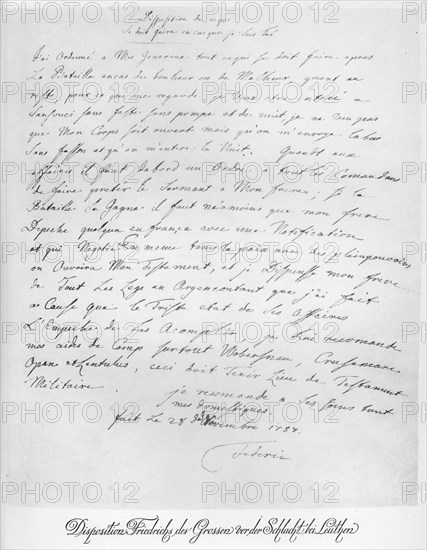 Disposition de ce qui
Se doit faire en cas que je Sois tué
J'ai Ordonné a Mes Generaux tout ce qui se doit faire apres
La Bataille en cas de bonheur ou de Malheur, quant au
reste pour ce qui me regarde je veux etre entéré a
Sansouci Sans faste Sans pompe et de nuit, je ne veux pas
que Mon Corps soit ouvert mais qu'on m'envoye la bas
Sans fasson et qu'on m'entere la Nuit. Quandt aux
affaires il faut dabord un Ordre a tout les Comandans
de faire pretter le Serment a Mon frere; Si la
Bataille Ce Gagne il faut neamoins que mon frere
Dipeche quelqun en france avec une Notification
et qui Negotie En meme tems la paix avec des pleinpouvoirs
on Ouvrira Mon Testement, et je Dispense mon frere
de Tout Les Legs en Argencontant que j'ai fait
a Cause que le Triste etat de Ses Affaires
L'Empeche de Les Acomplir. je Luy recomande
mes aides de Camp surtout Wobersnau, Crusemarc
Open et Lentulus, ceci doit Tenir Lieu de Testament
Militaire
je recomande a Ses Soins tout
mes Domestiques
fait Le 28 de Novembre 1757
Federic
Disposition Friedrichs des Grossen vor der Schlacht bei Leuthen
PHOTO 12